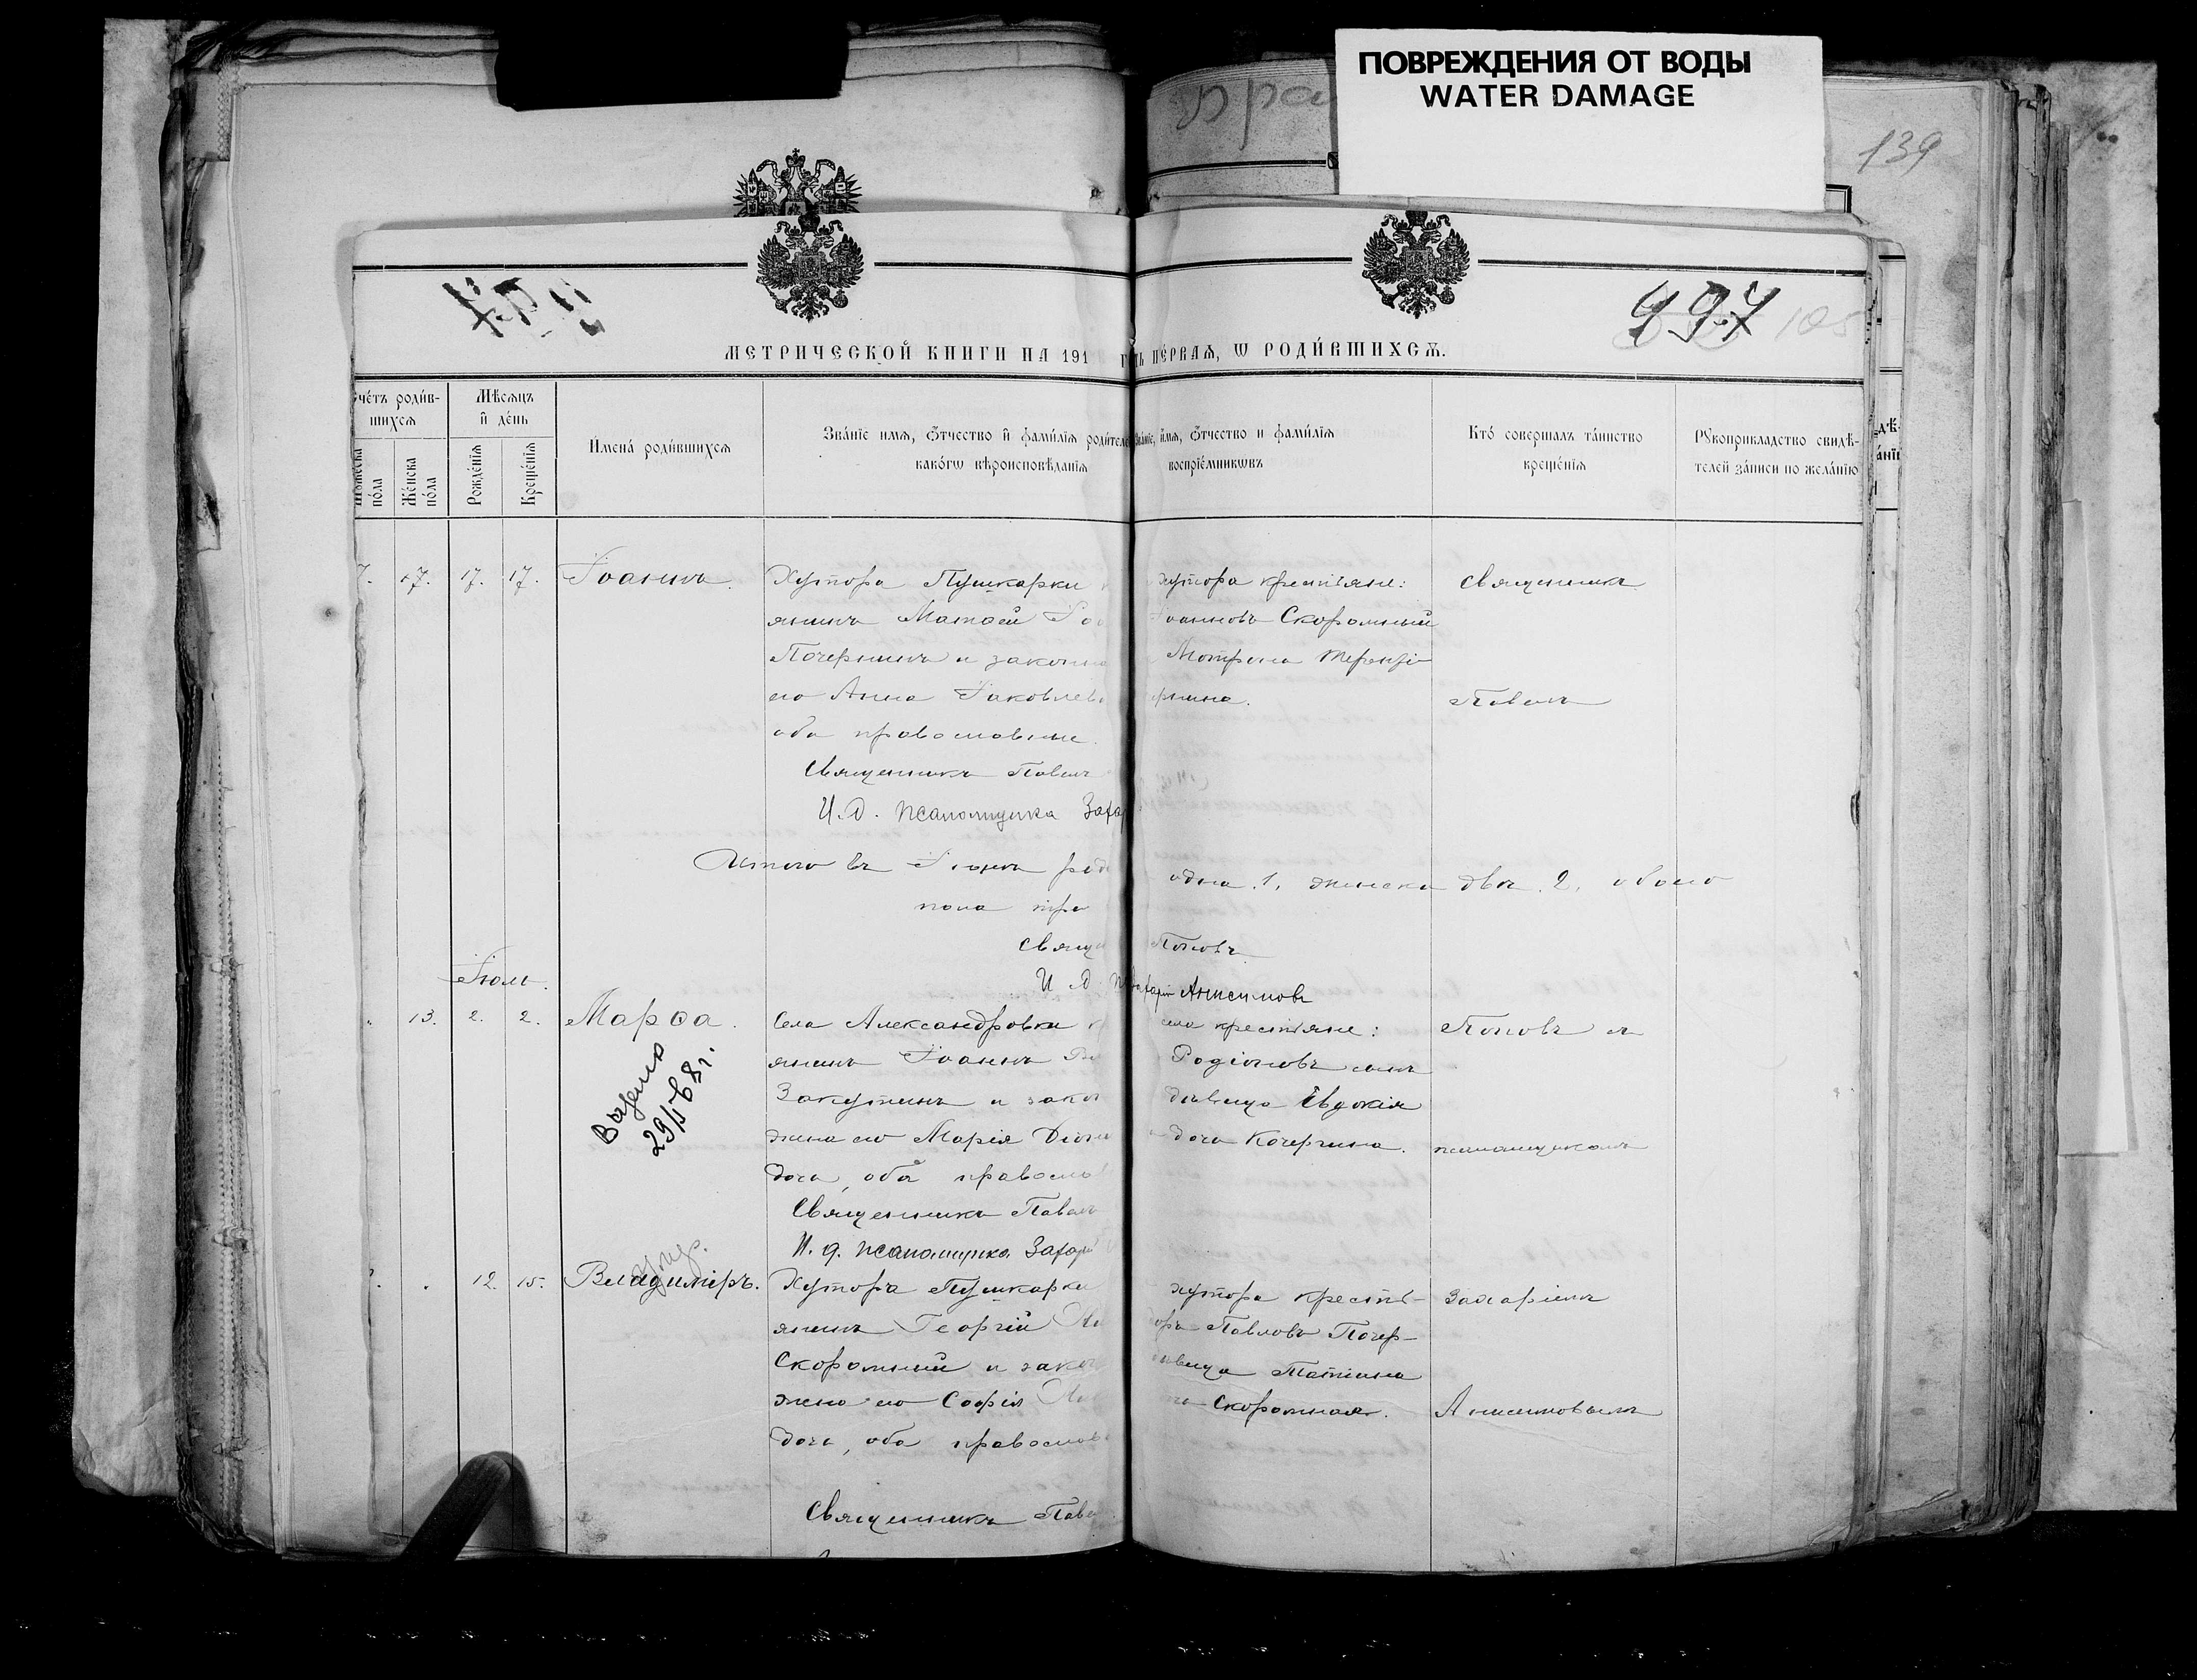 ПОВРЕЖДЕНИЯ ОТ ВОДЫ
WATER DAMAGE
139
997
105
МЕТРИЧЕСКОЙ КНИГИ НА 191
ПЕРВАЯ, Ѡ РОДИ́ВШИХСѦ.
счéтъ роди́в-
шихсѧ
Мѣсѧцъ
и҆ дéнь
Мꙋжеска
пóла
Жéнска
пóла
Рождéнїѧ
Крещéнїѧ
И҆мена́ роди́вшихсѧ
Звáнїе имѧ, ѻ҆́тчество и҆ фами́лїѧ родителе
какóгѡ вѣроисповѣ́данїѧ
Звáнїе, и҆́мѧ, ѻ҆́тчество и фами́лїѧ
воспрїéмникѡвъ
Ктó совершалъ тáинство
крещéнїѧ
Рꙋкоприкладство свидѣ́-
телей зáписи по желáнїю
7. 17. 17.
Іоаннъ.
Хутора Пушкарки
янинъ Матѳей
Почернинъ и законна
его Анна Іаковлев
оба православные.
Священникъ Павелъ
И. д. псаломщика Захар
хутора крестьяне:
Іоанновъ Скоромный
Мотрона
Священникъ
Павелъ
Итого въ Іюнѣ род
одна .1, женска двѣ .2, обоего
пола три
Священ
Поповъ
И. д.
Анисимовъ
Іюль.
13. 2. 2.
Марѳа.
Села Александровки
янинъ Іоаннъ
Закутинъ и закон
жена его Марія Діони
доча, оба правосл
Священникъ Павелъ
И. д. псаломщика Захарій
села крестьяне:
Родіоновъ
дѣвица Евдокія
доча Кочергина.
Поповъ съ
псаломщикомъ
Выдано
29/I 68 г.
12. 15.
Владиміръ.
Хутора Пушкарки
янинъ Георгій
Скоромный и закон
жена его Софія
доча, оба православ
Священникъ Паве
хутора кресть-
Павловъ Почер-
дѣвица Татіана
Скоромная.
Захаріемъ
Анисимовымъ